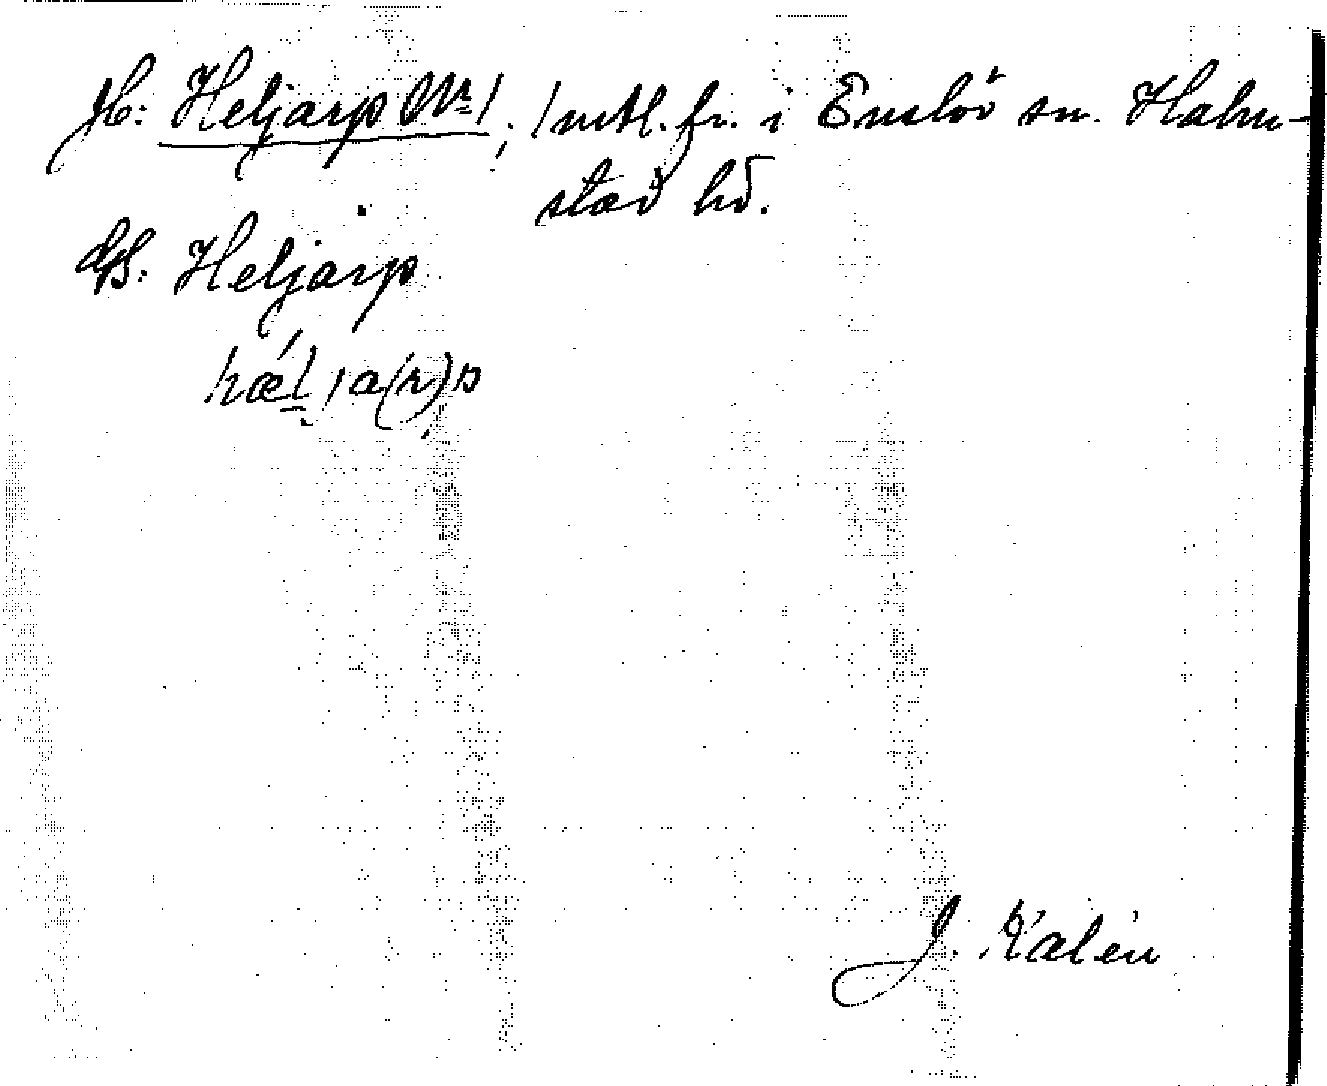 H: Heljarp Nr 1, 1 mtl. fr. i Enslöv sn. Halm-
stad hd.
GB: Heljarp
hǽl ja(r)p
J. Kalén